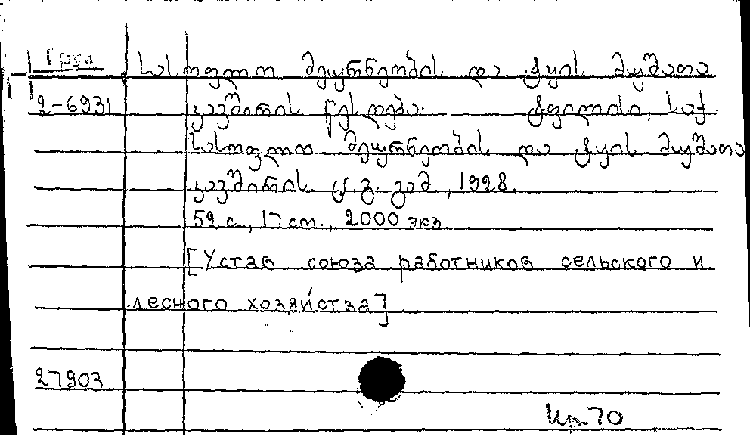 Груз
სასოფლო მეურნეობის და ტყის მუშათა
2-6931 კავშირის წესდება. ტფილისი, საქ.
სასოფლო მეურნეობის და ტყის მუშათა
კავშირის ც. გ. გამ., 1928.
52 с., 17 cm., 2000 экз.
[Устав союза работников сельского и
лесного хозяйства]
27903
Ир. 70